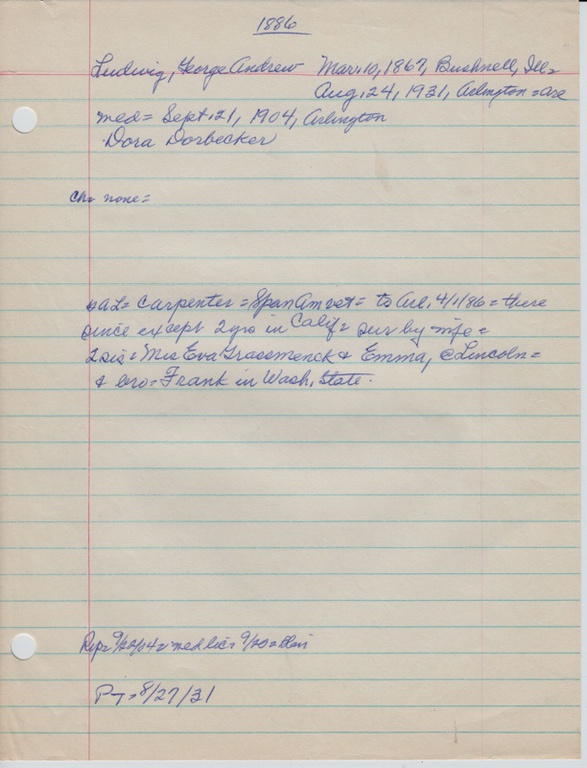 1886
Ludwig, George Andrew Mar. 10, 1867, Bushnell, Ill=
Aug. 24, 1931, Arlington = are
med= Sept. 21, 1904, Arlington
Dora Dorbecker
Ch= none=
= carpenter = Span Am vet = to Arl, 4/1/86 = there
since except 2 yrs in Calif= sur by wife =
2 sis = Mrs Eva Grassmenck & Emma, @ Lincoln=
& bro= Frank in Wash, State.
Rep= 9/22/04= med lic= 9/20=
8/27/31